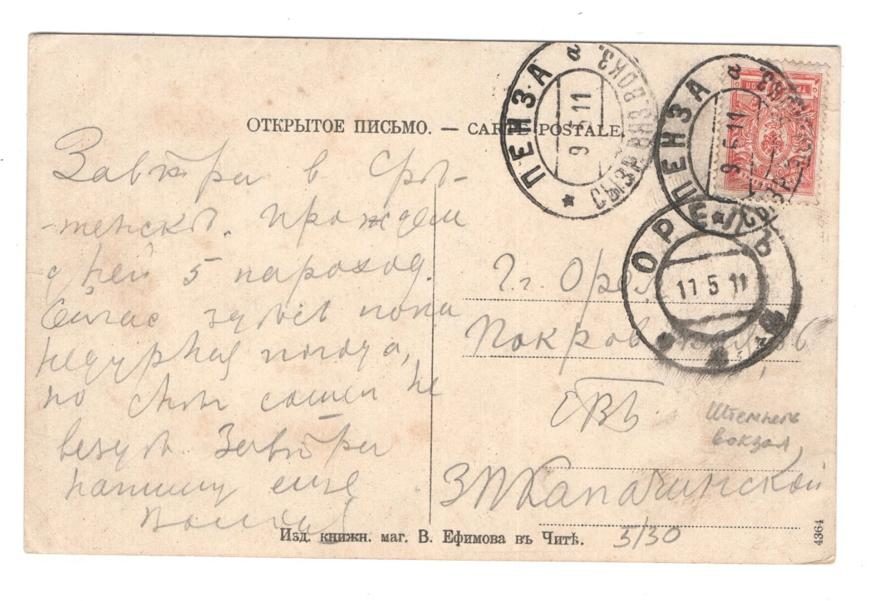 ОТКРЫТОЕ ПИСЬМО. — CARTE POSTALE.
ПЕНЗА а
9 5 11
СЫЗ. ВЯЗ. ВОКЗ.
ПЕНЗА а
9 5 11
ОРЕЛЪ
11 5 11
Завтра в Сре-
тенскѣ. Прождем
дней 5 пароход.
Сейчас здѣсь пока
недурная погода,
но
везуч Завтра
напишу еще
Г. г. Орел
Покровская, 36
ЕВБ.
З П Капачинской
Штемпель
вокзал
5/30
Изд. книжн. маг. В. Ефимова въ Читѣ.
4364